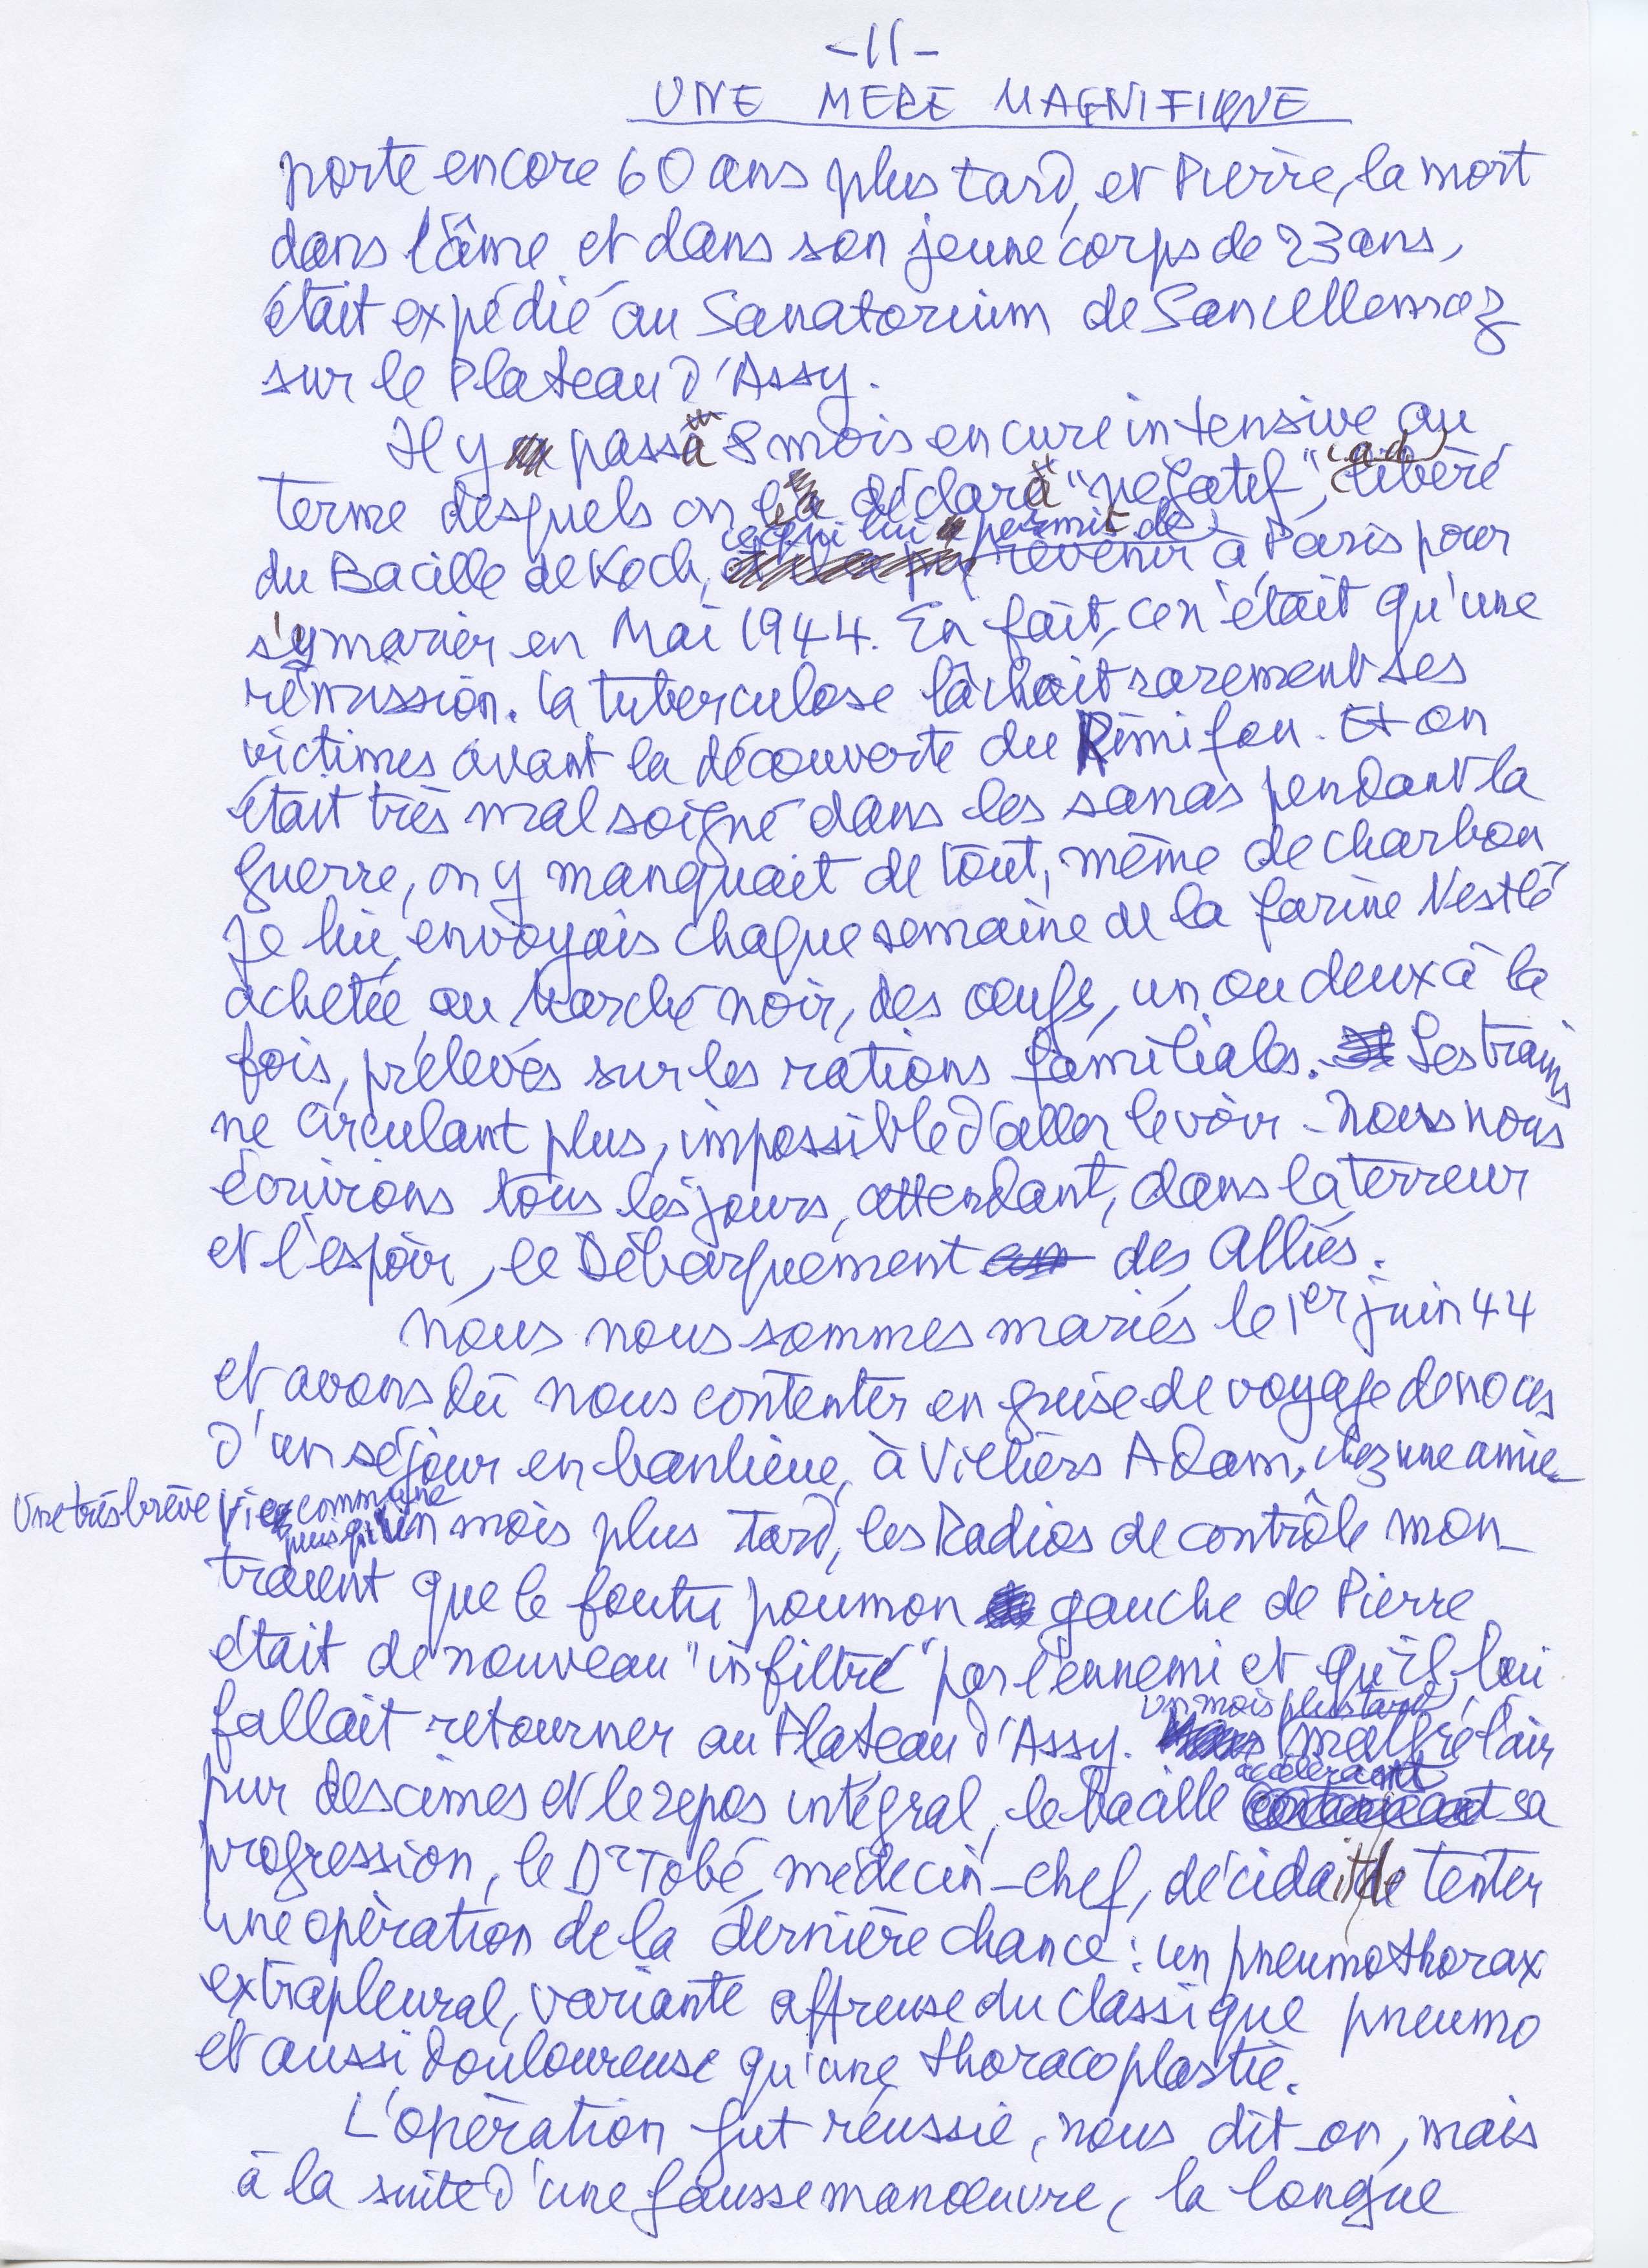 -11-
UNE MERE MAGNIFIQUE
porte encore 60 ans plus tard, et Pierre, la mort
dans l'âme et dans son jeune corps de 23 ans,
était expédié au Sanatorium de Sancellemoz
sur le Plateau d'Assy.
Il y passa 8 mois en cure intensive au
terme desquels on le déclara "négatif", c.a.d. libéré
du Bacille de Koch, ce qui lui permit de revenir à Paris pour
s'y marier en Mai 1944. En fait, ce n'était qu'une
rémission. La tuberculose lâchait rarement ses
victimes avant la découverte du Rimifon. Et on
était très mal soigné dans les sanas pendant la
guerre, on y manquait de tout, même de charbon
Je lui envoyais chaque semaine de la farine Nestlé
achetée au Marché noir, des œufs, un ou deux à la
fois, prélevés sur les rations familiales. Les trains
ne circulant plus, impossible d'aller le voir - Nous nous
écrivions tous les jours, attendant, dans la terreur
et l'espoir, le Débarquement des Alliés.
Nous nous sommes mariés le 1er juin 44
et avons dû nous contenter en guise de voyage de noces
d'un séjour en banlieue, à Villiers Adam, chez une amie_
Une très brève vie commune puisqu'un mois plus tard, les Radios de contrôle mon_
traient que le foutu poumon gauche de Pierre
était de nouveau "infiltré" par l'ennemi et qu'il lui
fallait retourner au Plateau d'Assy. Un mois plus tard, malgré l'air
pur des cimes et le repos intégral, le bacille accélérant sa
progression, le Dr Tobé, médecin-chef, décidait de tenter
une opération de la dernière chance : un pneumothorax
extrapleural, variante affreuse du classique pneumo
et aussi douloureuse qu'une thoracoplastie.
L'opération fut réussie, nous dit-on, mais
à la suite d'une fausse manœuvre, la longue